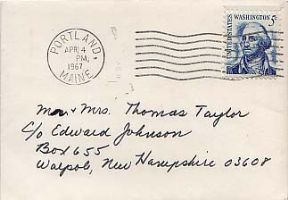 PORTLAND
APR 4
PM
1967
MAINE
UNITED STATES
WASHINGTON 5¢
Mr + Mrs. Thomas Taylor
C/o Edward Johnson
Box 655
Walpole, New Hampshire 03608